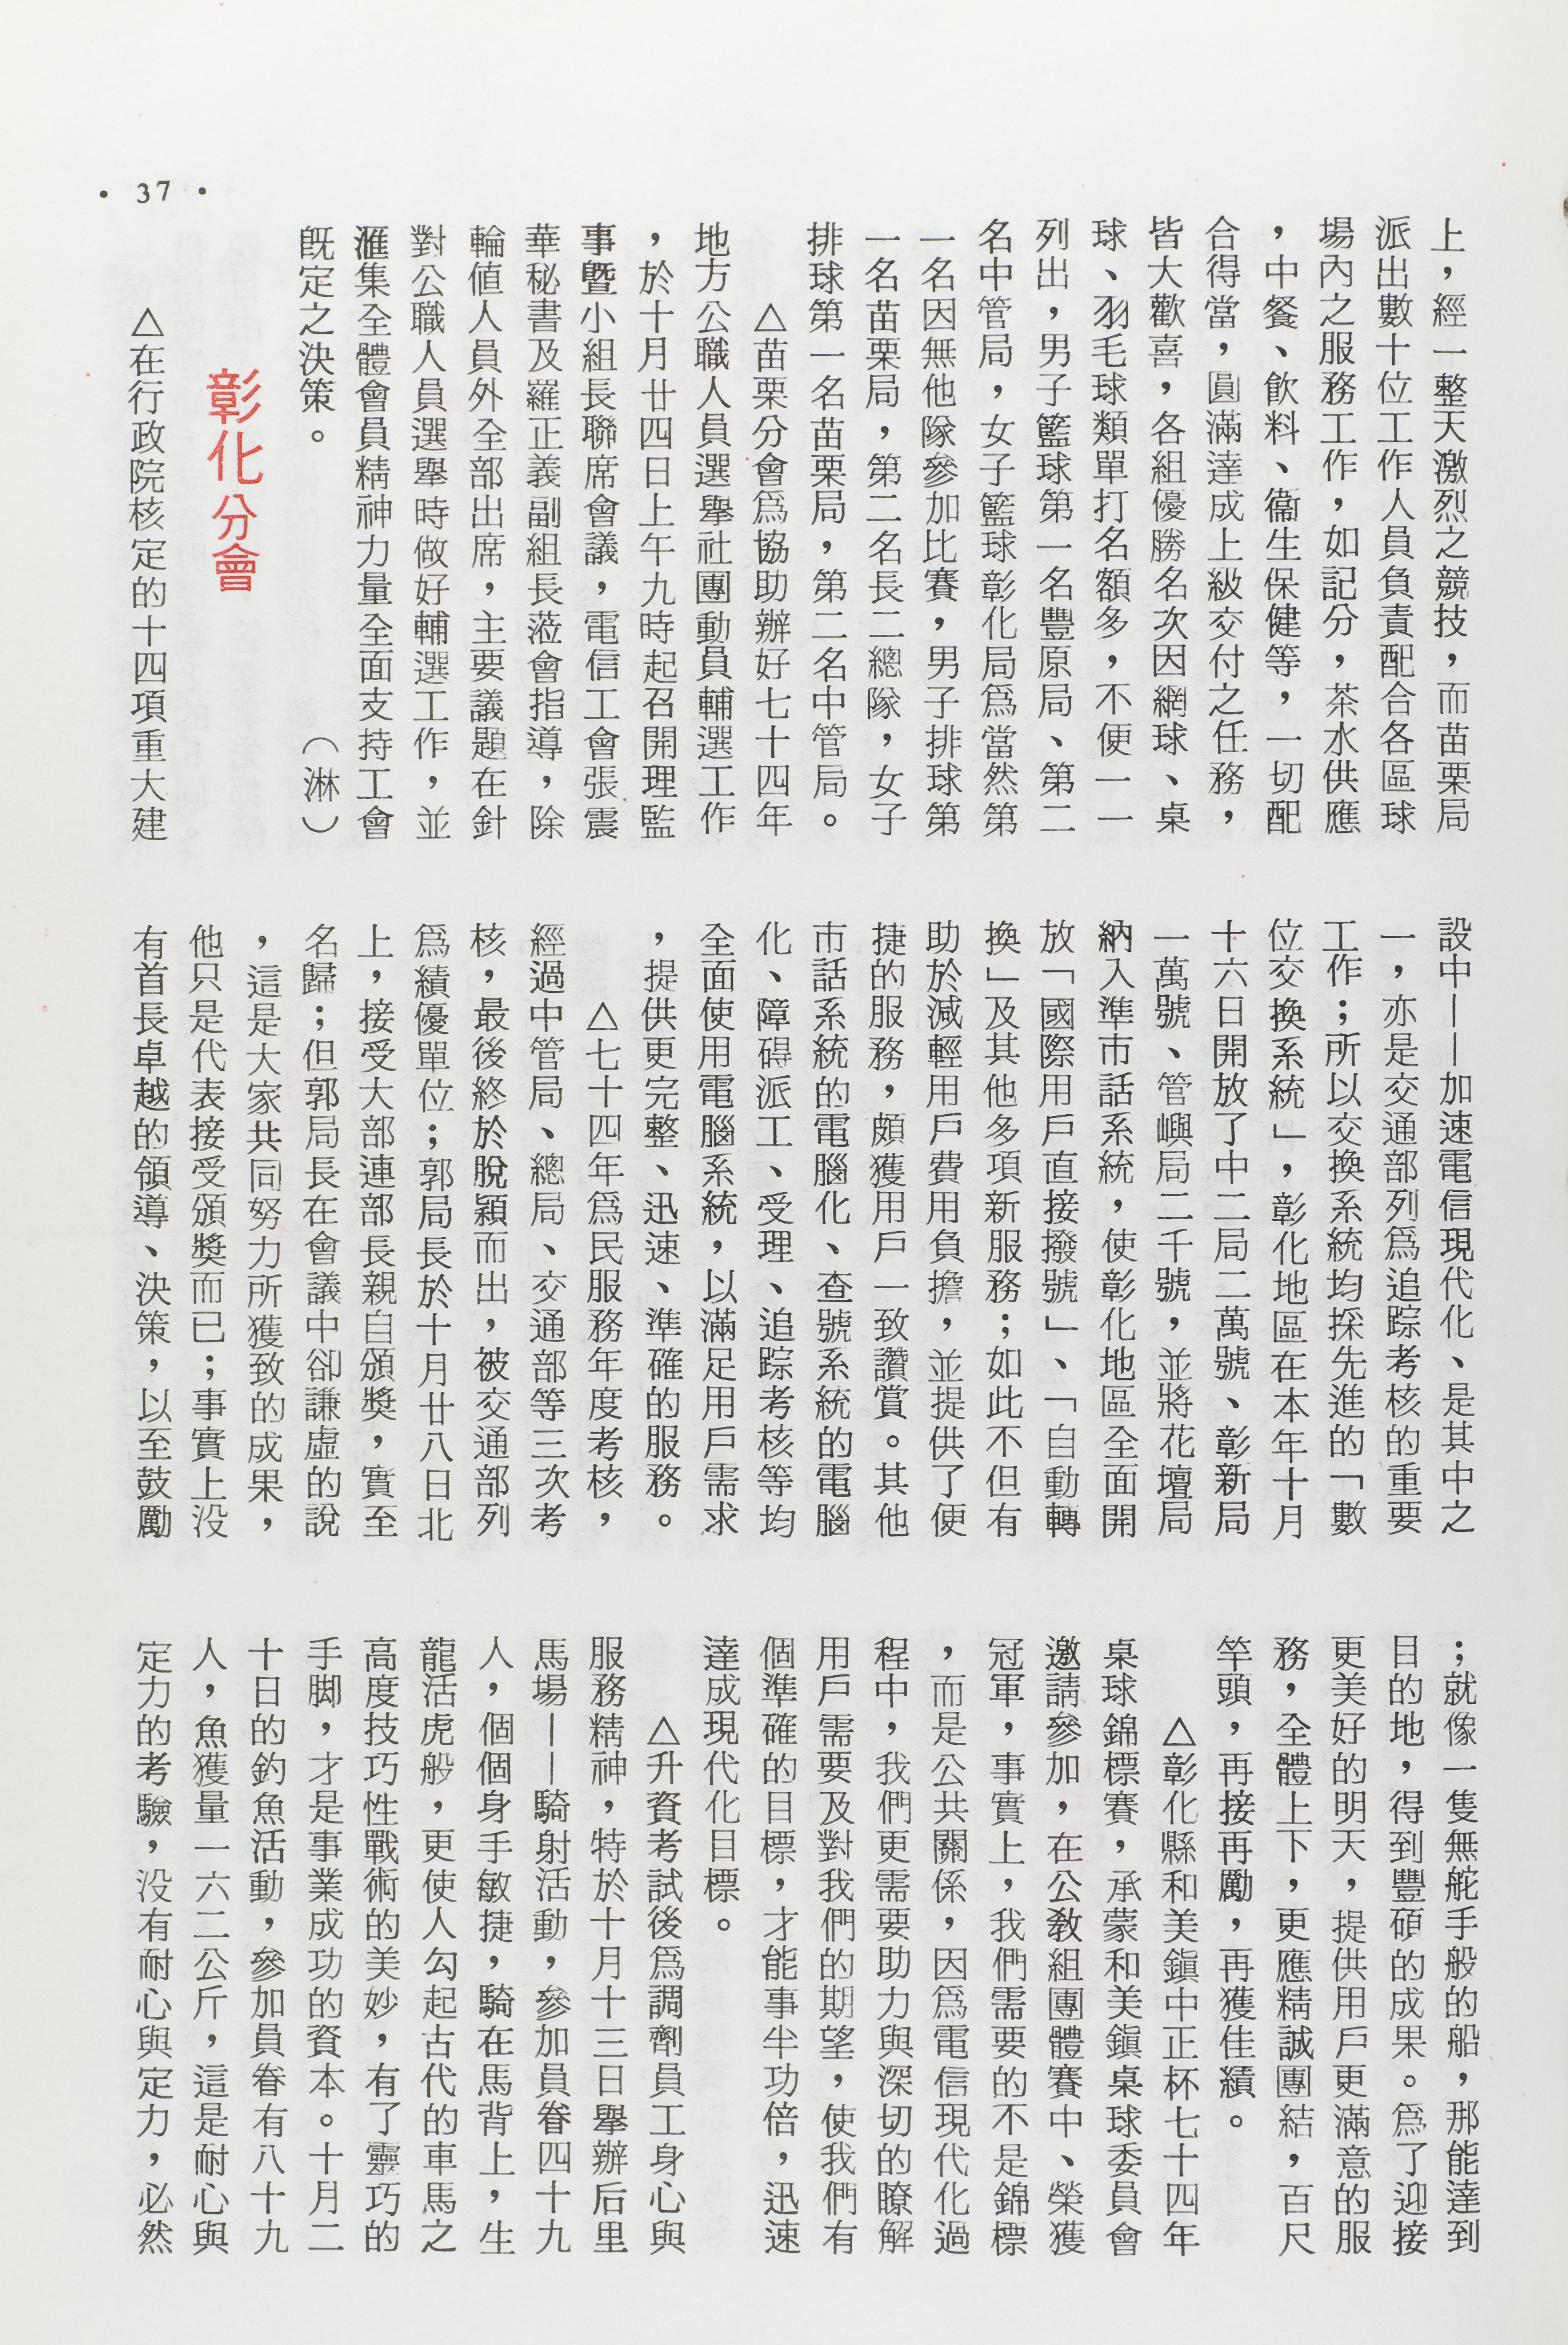 • 37 •
上，經一整天激烈之競技，而苗栗局
派出數十位工作人員負責配合各區球
場內之服務工作，如記分，茶水供應
，中餐、飲料、衞生保健等，一切配
合得當，圓滿達成上級交付之任務，
皆大歡喜，各組優勝名次因網球、桌
球、羽毛球類單打名額多，不便一一
列出，男子籃球第一名豐原局、第二
名中管局，女子籃球彰化局爲當然第
一名因無他隊參加比賽，男子排球第
一名苗栗局，第二名長二總隊，女子
排球第一名苗栗局，第二名中管局。
△苗栗分會爲協助辦好七十四年
地方公職人員選舉社團動員輔選工作
，於十月廿四日上午九時起召開理監
事暨小組長聯席會議，電信工會張震
華秘書及羅正義副組長蒞會指導，除
輪値人員外全部出席，主要議題在針
對公職人員選舉時做好輔選工作，並
滙集全體會員精神力量全面支持工會
旣定之決策。（淋）
彰化分會
△在行政院核定的十四項重大建
設中——加速電信現代化、是其中之
一，亦是交通部列爲追踪考核的重要
工作；所以交換系統均採先進的「數
位交換系統」，彰化地區在本年十月
十六日開放了中二局二萬號、彰新局
一萬號、管嶼局二千號，並將花壇局
納入準市話系統，使彰化地區全面開
放「國際用戶直接撥號」、「自動轉
換」及其他多項新服務；如此不但有
助於減輕用戶費用負擔，並提供了便
捷的服務，頗獲用戶一致讚賞。其他
市話系統的電腦化、查號系統的電腦
化、障碍派工、受理、追踪考核等均
全面使用電腦系統，以滿足用戶需求
，提供更完整、迅速、準確的服務。
△七十四年爲民服務年度考核，
經過中管局、總局、交通部等三次考
核，最後終於脫穎而出，被交通部列
爲績優單位；郭局長於十月廿八日北
上，接受大部連部長親自頒獎，實至
名歸；但郭局長在會議中卻謙虛的說
，這是大家共同努力所獲致的成果，
他只是代表接受頒獎而已；事實上没
有首長卓越的領導、決策，以至鼓勵
；就像一隻無舵手般的船，那能達到
目的地，得到豐碩的成果。爲了迎接
更美好的明天，提供用戶更滿意的服
務，全體上下，更應精誠團結，百尺
竿頭，再接再勵，再獲佳績。
△彰化縣和美鎭中正杯七十四年
桌球錦標賽，承蒙和美鎭桌球委員會
邀請參加，在公敎組團體賽中、榮獲
冠軍，事實上，我們需要的不是錦標
，而是公共關係，因爲電信現代化過
程中，我們更需要助力與深切的瞭解
用戶需要及對我們的期望，使我們有
個準確的目標，才能事半功倍，迅速
達成現代化目標。
△升資考試後爲調劑員工身心與
服務精神，特於十月十三日舉辦后里
馬場——騎射活動，參加員眷四十九
人，個個身手敏捷，騎在馬背上，生
龍活虎般，更使人勾起古代的車馬之
高度技巧性戰術的美妙，有了靈巧的
手脚，才是事業成功的資本。十月二
十日的釣魚活動，參加員眷有八十九
人，魚獲量一六二公斤，這是耐心與
定力的考驗，没有耐心與定力，必然